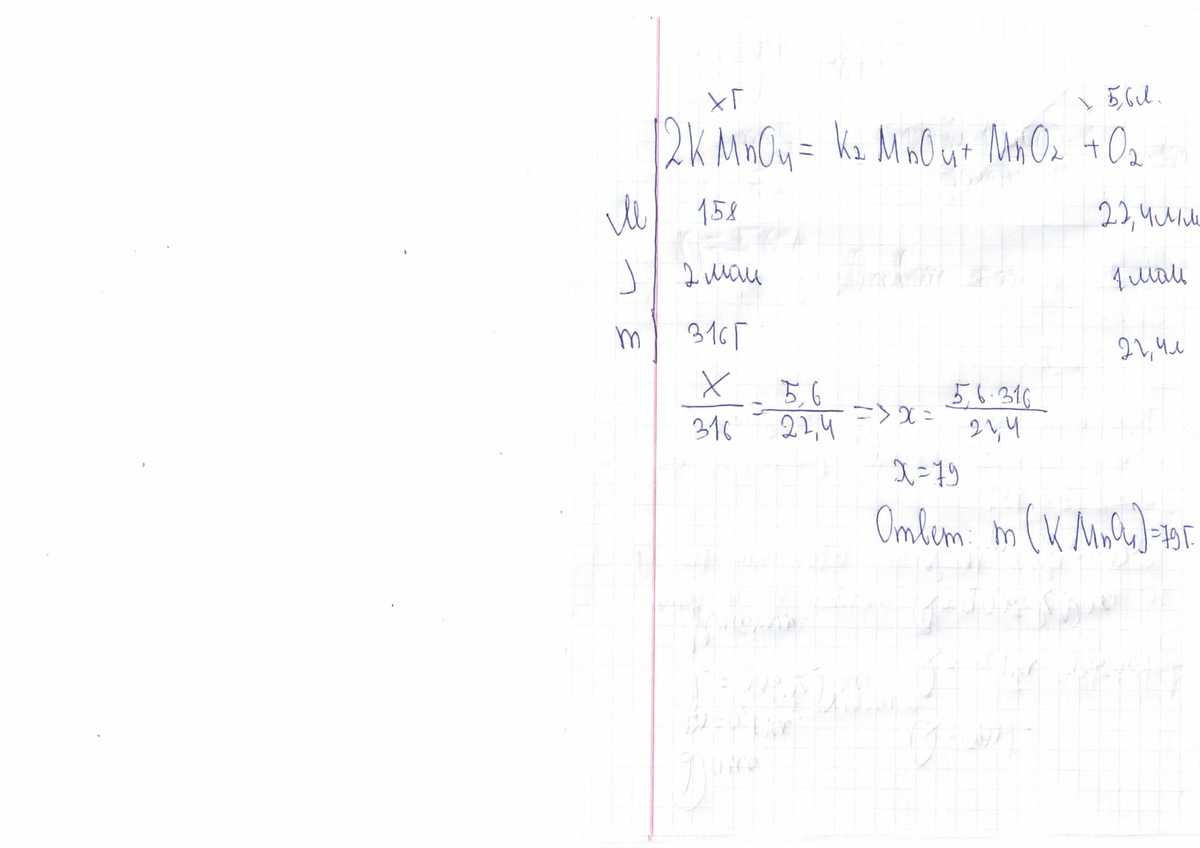 xг 5,6л.
2KMnO4 = K2MnO4 + MnO2 + O2
M 158 22,4л/м
ν 2 мол 1 мол
m 316г 22,4л
X/316 = 5,6/22,4 => x = 5,6·316/22,4
x=79
Ответ: m(KMnO4)=79г.